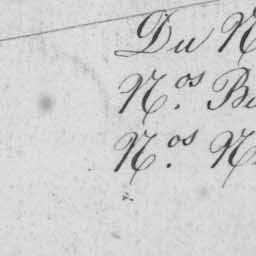 Du N
N.os B
N.os N